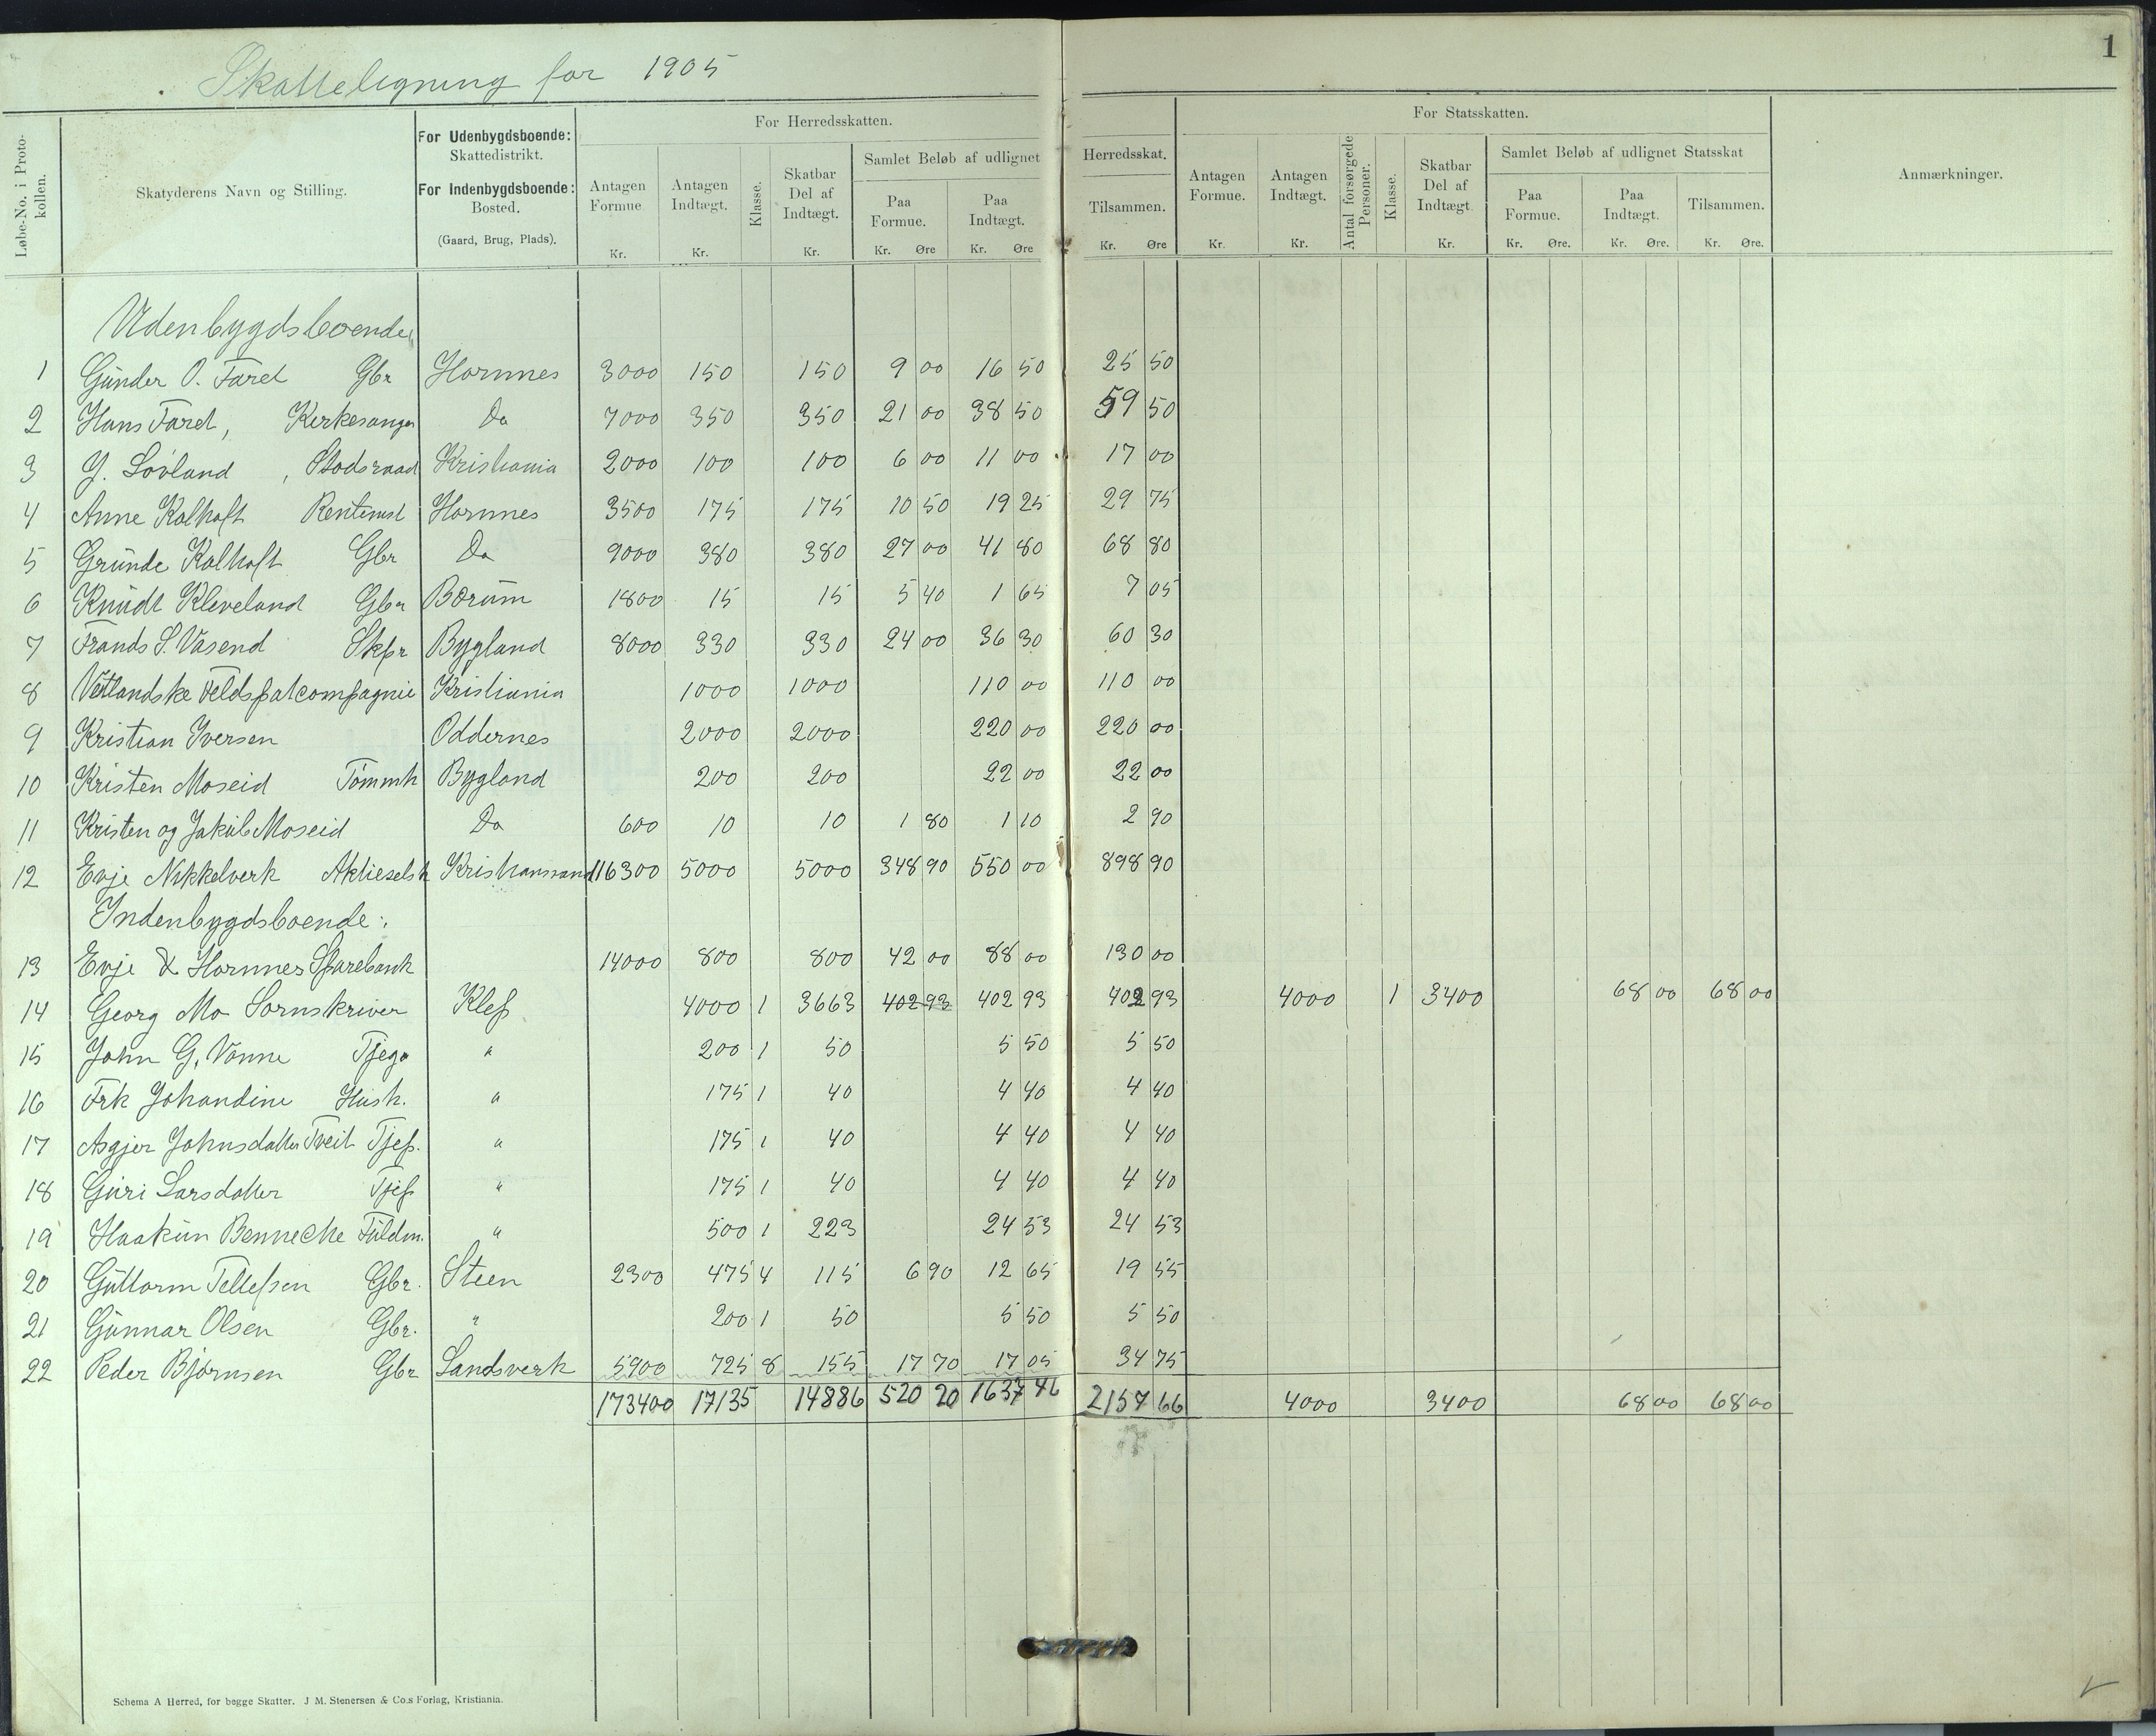 1
Skatteligning for 1905
Løbe-No. i Protokollen. Skatyderens Navn og Stilling. For Udenbygdsboende: Skattedistrikt. For Indenbygdsboende: Bosted. (Gaard, Brug, Plads).
For Herredsskatten.
Antagen Formue Kr. Antagen Indtægt. Kr. Klasse. Skatbar Del af Indtægt. Kr. Samlet Beløb af udlignet Herredsskat. Paa Formue. Kr. Øre Paa Indtægt. Kr. Øre Tilsammen. Kr. Øre
For Statsskatten.
Antagen Formue. Kr. Antagen Indtægt. Kr. Antal forsørgede Personer. Klasse. Skatbar Del af Indtægt. Kr. Samlet Beløb af udlignet Statsskat Paa Formue. Kr. Øre. Paa Indtægt. Kr. Øre. Tilsammen. Kr. Øre.
Anmærkninger.
Udenbygdsboende
1 Gunder O. Faret Gbr Hornnes 3000 150 150 9 00 16 50 25 50
2 Hans Faret, Kirkesanger Do 7000 350 350 21 00 38 50 59 50
3 J. Løvland, Stadsraad Kristiania 2000 100 100 6 00 11 00 17 00
4 Anne Kalhoft Hornnes 3500 175 175 10 50 19 25 29 75
5 Grunde Kalhoft Gbr Do 9000 380 380 27 00 41 80 68 80
6 Knudt Kleveland Gbr Bærum 1800 15 15 5 40 1 65 7 05
7 Frands S. Vasend Skpr Bygland 8000 330 330 24 00 36 30 60 30
8 Vestlandske Feldspatcompagnie Kristiania 1000 1000 110 00 110 00
9 Kristian Iversen Oddernes 2000 2000 220 00 220 00
10 Kristen Moseid Tømmh Bygland 200 200 22 00 22 00
11 Kristen og Jakob Moseid Do 600 10 10 1 80 1 10 2 90
12 Evje Nikkelverk Aktieselsk Kristianssand 116300 5000 5000 348 90 550 00 898 90
Indenbygdsboende:
13 Evje & Hornnes Sparebank 14000 800 800 42 00 88 00 130 00
14 Georg Mo Sornskriver Klep 4000 1 3663 402 93 402 93 402 93 4000 1 3400 68 00 68 00
15 John G. Vonne " 200 1 50 5 50 5 50
16 Frk Johandine Hush. " 175 1 40 4 40 4 40
17 Asgjer Johnsdatter Tveit Tjep. " 175 1 40 4 40 4 40
18 Guri Larsdatter Tjep " 175 1 40 4 40 4 40
19 Haakun Bennecke Fuldm. " 500 1 223 24 53 24 53
20 Guttorm Tellefsen Gbr. Steen 2300 475 4 115 6 90 12 65 19 55
21 Gunnar Olsen Gbr. " 200 1 50 5 50 5 50
22 Peder Bjørnsen Gbr Landsverk 5900 725 8 155 17 70 17 05 34 75
173400 17135 14886 520 20 1637 46 2157 66 4000 3400 68 00 68 00
Schema A Herred, for begge Skatter. J M. Stenersen & Co.s Forlag, Kristiania.